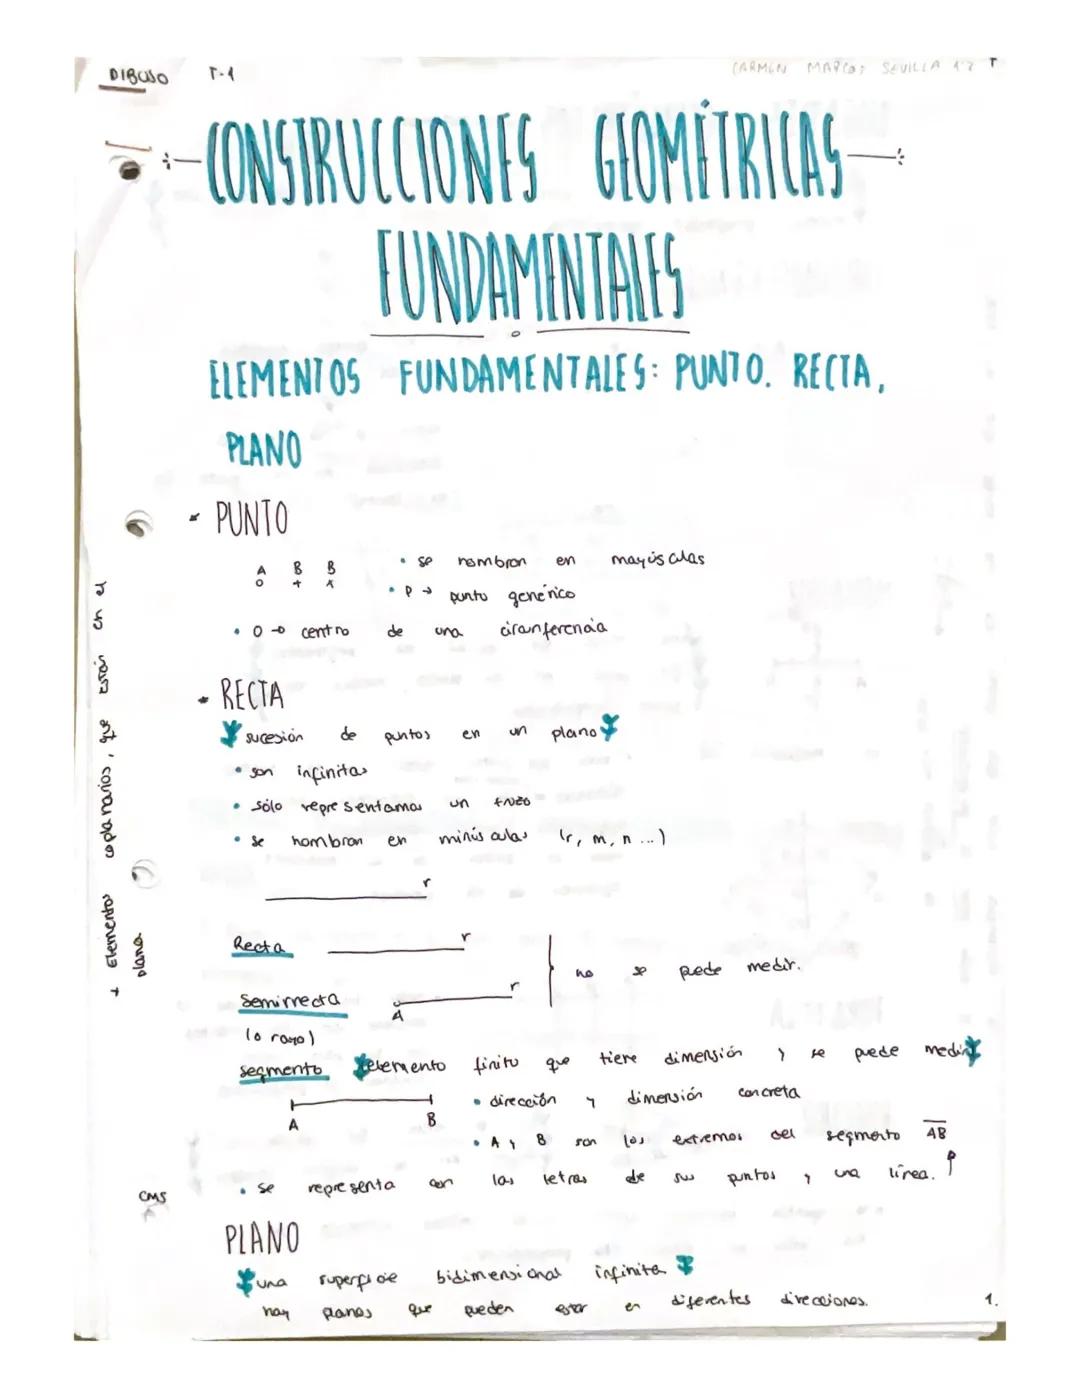 DIBUJO T-1
CARMEN MARCOS SEVILLA 1º
CONSTRUCCIONES GEOMÉTRICAS
FUNDAMENTALES
ELEMENTOS FUNDAMENTALES: PUNTO. RECTA,
PLANO
PUNTO
A B B
• se nombran en mayúsculas
• P → punto genérico
• O → centro de una circunferencia
RECTA
sucesión de puntos en un plano
• son infinitas
• sólo representamos un trozo
• se nombran en minúsculas (r, m, n ...)
r
Recta r
no se puede medir.
Semirrecta A r
(o rayo)
segmento elemento finito que tiene dimensión y se puede medir
A B
• dirección y dimensión concreta
• A y B son los extremos del segmento AB
• se representa con las letras de sus puntos y una línea.
CMS
PLANO
una superficie bidimensional infinita
hay planos que pueden estar en diferentes direcciones.
1.
Elementos coplanarios, que están en el
plano.